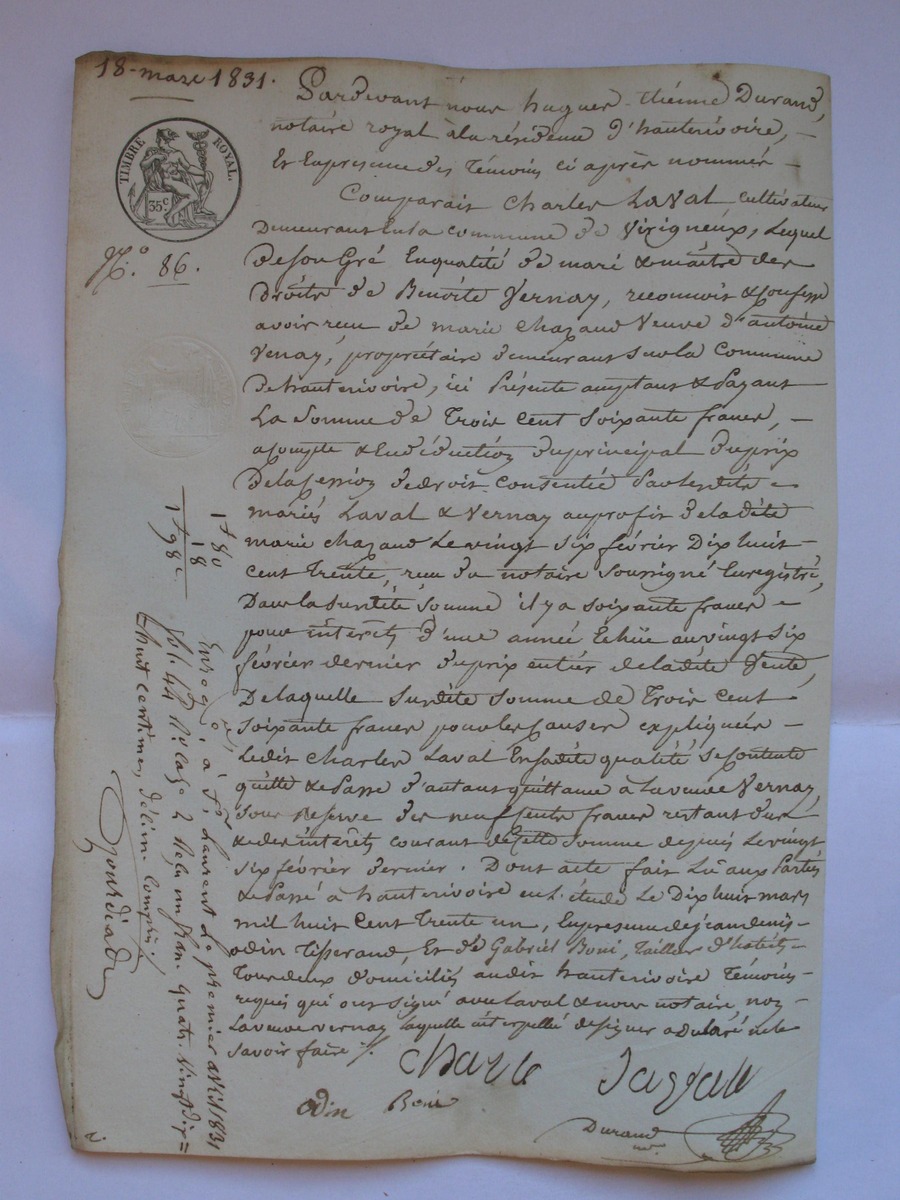 18 mars 1831.
TIMBRE ROYAL.
35 c.
N.º 86.
Pardevant nous hugues étienne Durand,
notaire royal à la résidence d'hauterivoire,
Et En presence des Témoins ci après nommés
Comparait Charles Laval cultivateur
Demeurant En la commune de Virigneux, Lequel
De son Gré En qualité de mari & maître des
Droits de Benoite Vernay, reconnois & confesse
avoir recu de marie Chazaud Veuve d'antoine
Venay, propriétaire demeurant sur la Commune
de hauterivoire, ici Présente acceptant & Payant
La Somme de Trois Cent Soixante francs,
acompte & En déduction du principal du prix
De la cession de droits Consentie Par lesdits
mariés Laval & Vernay au profit de la dite
marie chazaud Le vingt Six février Dix huit
Cent Trente, recu du notaire Soussigné Enregistré,
Dans la susdite Somme il y a soixante francs
pour intérêts d'une année Echue au vingt Six
février dernier du prix entier de la dite Vente,
De laquelle Susdite Somme de Trois Cent
Soixante francs pour les Causes expliquées
Ledit Charles Laval En sadite qualité Se Contente
quitte & Passe d'autant quittance à La veuve Vernay,
Sous Reserve des neuf Cents francs restant dus
& des interêts courant de Cette Somme depuis Le vingt
Six février dernier. Dont acte fait Lu aux Parties
& Passé à hauterivoire en L'étude Le Dix huit mars
mil huit Cent Trente un, En presence de jean denis
odin Tisserand, Et de Gabriel Boni, Tailleur d'habits
Tous deux domiciliés audit hauterivoire Témoins
requis qui ont Signé avec Laval & nous notaire, non
La veuve vernay Laquelle interpellée de signer a déclaré ne le
Savoir faire ./.
Charle Laval
odin Boni
Durand
1f 80
18
1f 98c
Enreg.é à St. Laurent Le premier avril 1831
fol. 44 Rec un fran. quatre vingt dix
huit centimes, décime compris.